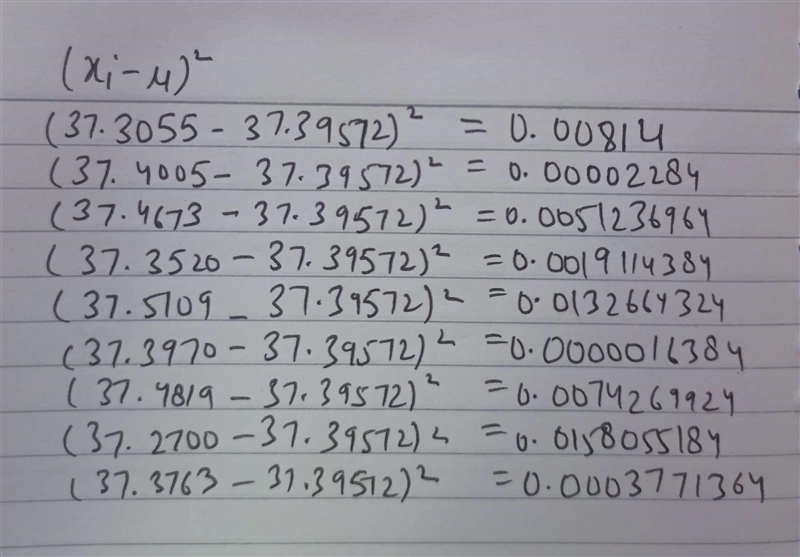 (xi-μ)²
(37.3055 - 37.39572)² = 0.00814
(37.4005 - 37.39572)² = 0.00002284
(37.4673 - 37.39572)² = 0.0051236964
(37.3520 - 37.39572)² = 0.0019114384
(37.5109 - 37.39572)² = 0.0132664324
(37.3970 - 37.39572)² = 0.0000016384
(37.4819 - 37.39572)² = 0.0074269924
(37.2700 - 37.39572)² = 0.0158055184
(37.3763 - 37.39572)² = 0.0003771364